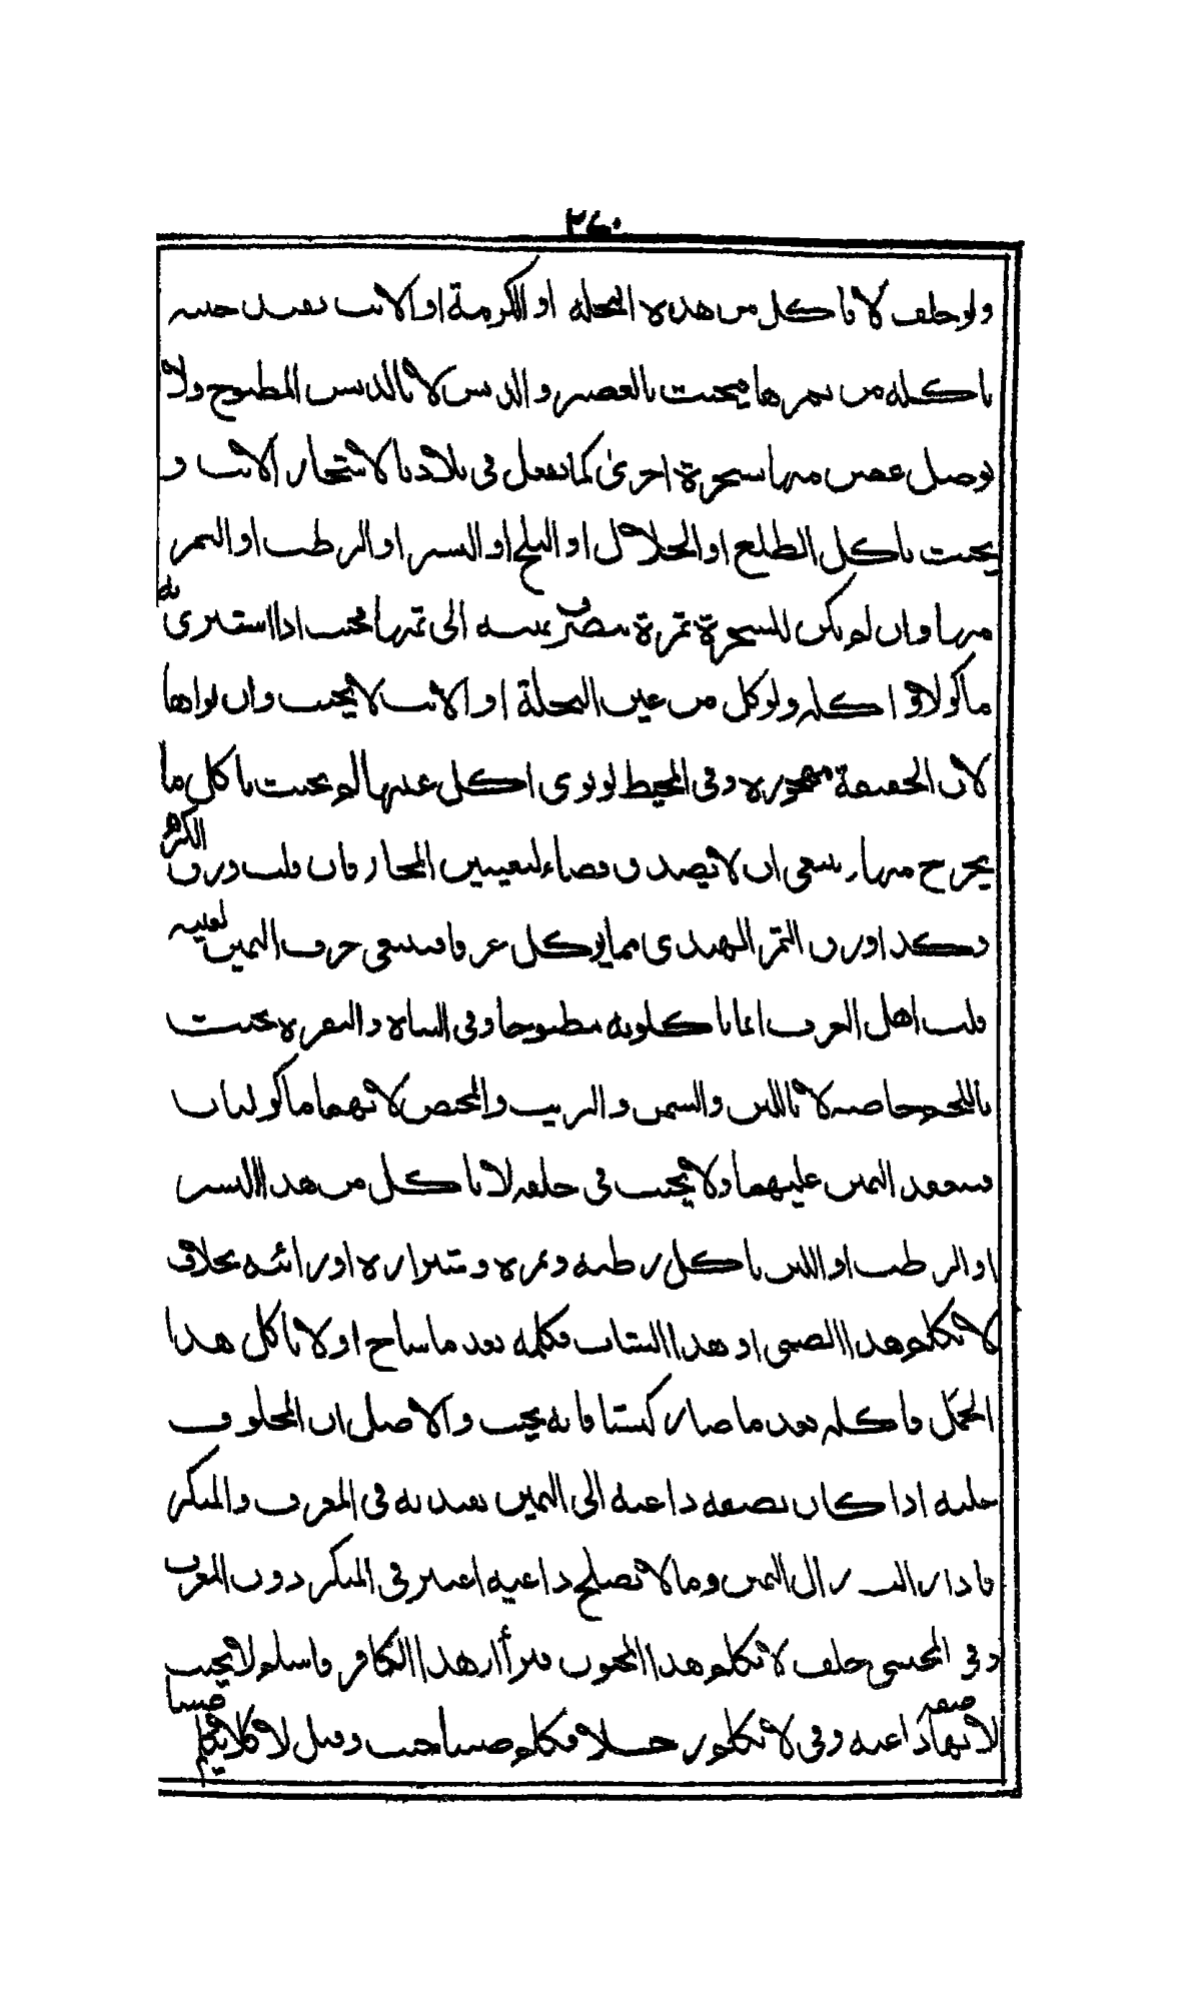 ٢٤٠
ولو حلف لا ياكل من هذه النخلة او الكرمة او الانب تقيد حنثه
باكله من ثمرها فيحنث بالعصير والدبس لا بالدبس المطبوخ ولا
بوصل غصن منها بشجرة اخرى كما نفعل في بلادنا لاشجار الانب و
يحنث باكل الطلع او الخلال او البلح او البسر او الرطب او التمر
منها وان لم يكن للشجرة ثمرة تصرف يمينه الى ثمنها فيحنث اذا اشترى به
ماكولا و اكله ولو كل من عين النخلة او الانب لا يحنث وان نواها
لان الحقيقة مهجورة وفي المحيط لو نوى اكل عينها لم يحنث باكل ما
يخرج منها ينبغي ان لا يصدق قضاء لتعيين المجاز فان قلت ورق الكرم
وكذا ورق التمر الهندي مما يوكل عرفا فينبغي صرف اليمين لعينه
قلت اهل العرف انما ياكلونه مطبوخا وفي الشاة والبقرة يحنث
باللحم خاصة لا باللبن والسمن والزبيب والحمص لانهما ماكولان
فينعقد اليمين عليهما ولا يحنث في حلفه لا ياكل من هذا البسر
او الرطب او اللبن باكل رطبه وتمره وشيرازه او رائبه بخلاف
لا يكلم هذا الصبي او هذا الشاب فكلمه بعد ما شاخ او لا ياكل هذا
الحمل فاكله بعد ما صار كبشا فانه يحنث والاصل ان المحلوف
عليه اذا كان بصفة داعية الى اليمين تقيد به في المعرف والمنكر
فاذا زالت زال اليمين وما لا تصلح داعية اعتبر في المنكر دون المعرف
وفي المجتبى حلف لا يكلم هذا المجنون فبرأ او هذا الكافر فاسلم لا يحنث
لانها صفة داعية وفي لا يكلم رجلا فكلم صبيا حنث وقيل لا كلا يكلم صبيا